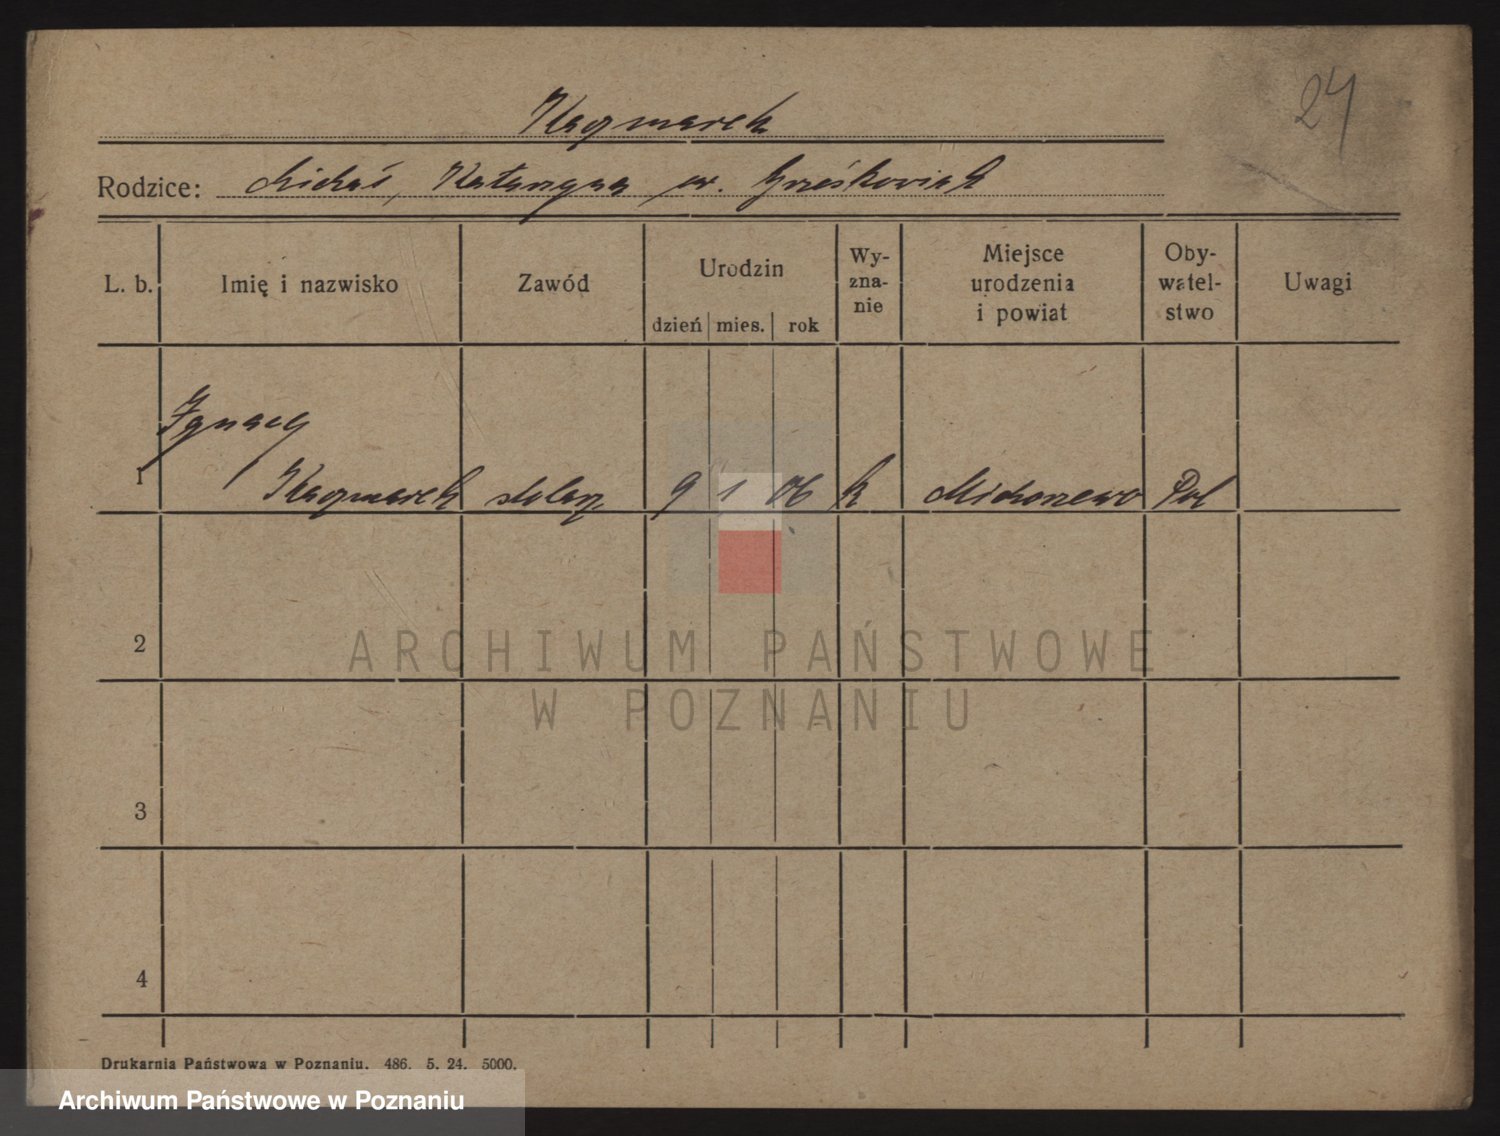 24
Kaczmarek
Rodzice: Michał, Katarzyna ur. Grześkowiak
L. b. Imię i nazwisko Zawód Urodzin dzień mies. rok Wy-znanie Miejsce urodzenia i powiat Oby-watel-stwo Uwagi
Ignacy
1 Kaczmarek stolarz 9 1 06 k Pol
2
ARCHIWUM PAŃSTWOWE
W POZNANIU
3
4
Drukarnia Państwowa w Poznaniu. 486. 5. 24. 5000.
Archiwum Państwowe w Poznaniu